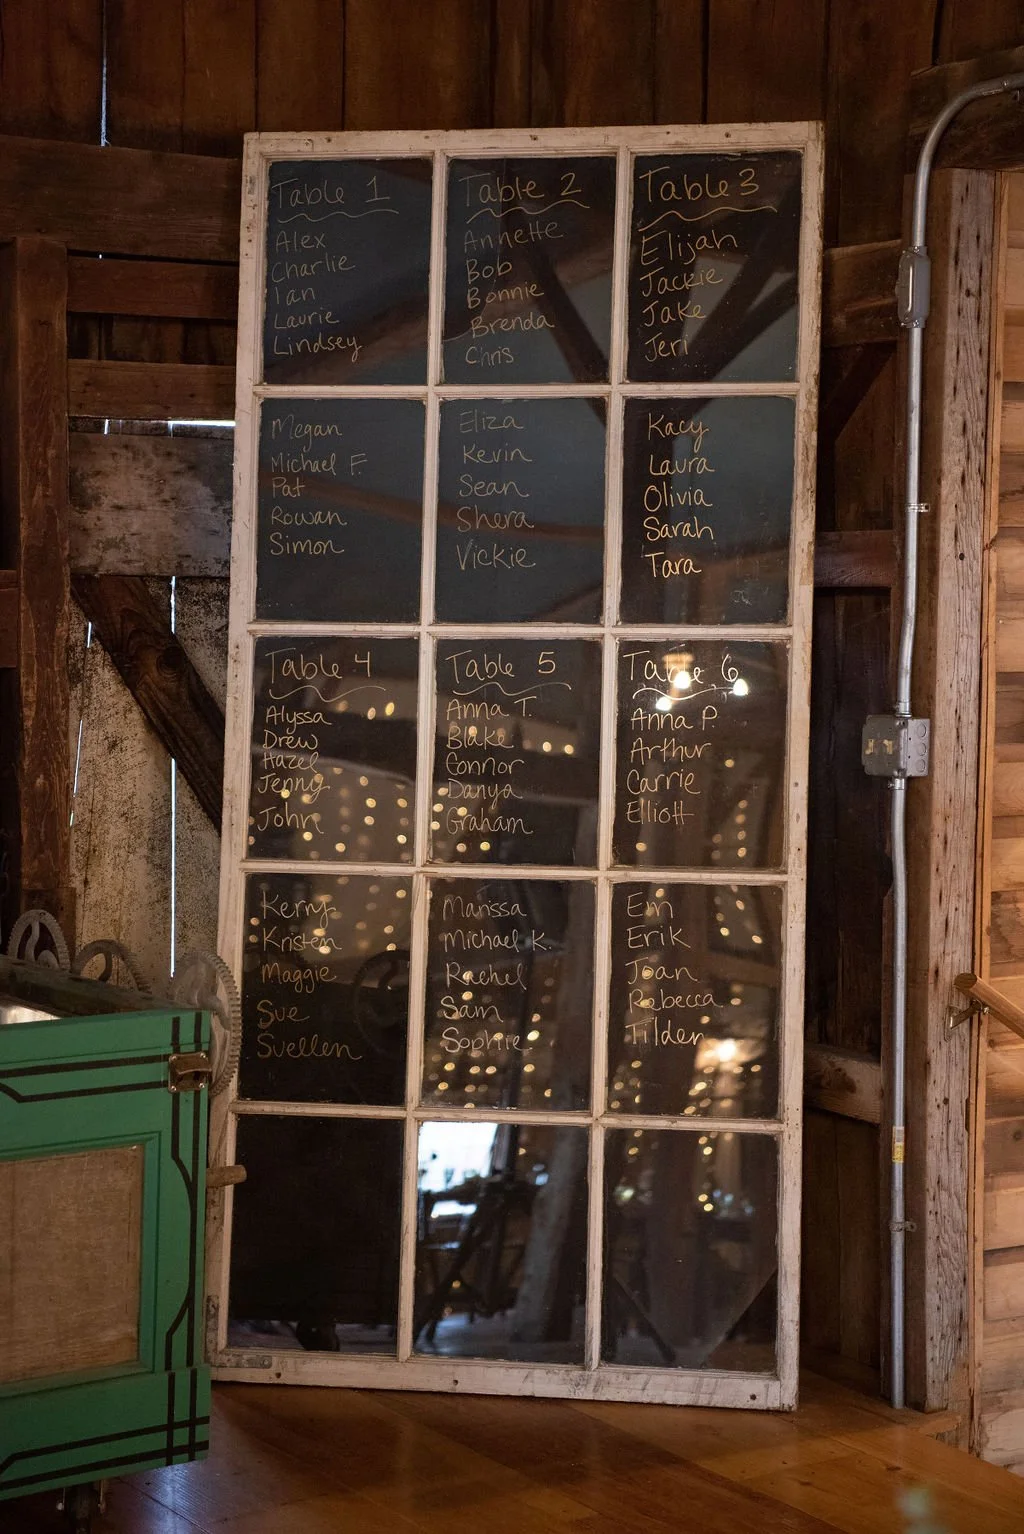 Table 1
Alex
Charlie
Ian
Laurie
Lindsey
Megan
Michael F.
Pat
Rowan
Simon
Table 2
Annette
Bob
Bonnie
Brenda
Chris
Eliza
Kevin
Sean
Shera
Vickie
Table 3
Elijah
Jackie
Jake
Jeri
Kacy
Laura
Olivia
Sarah
Tara
Table 4
Alyssa
Drew
Hazel
Jenny
John
Kerry
Kristen
Maggie
Sue
Suellen
Table 5
Anna T.
Blake
Connor
Danya
Graham
Marissa
Michael K.
Rachel
Sam
Sophie
Table 6
Anna P.
Arthur
Carrie
Elliott
Em
Erik
Joan
Rebecca
Tilden